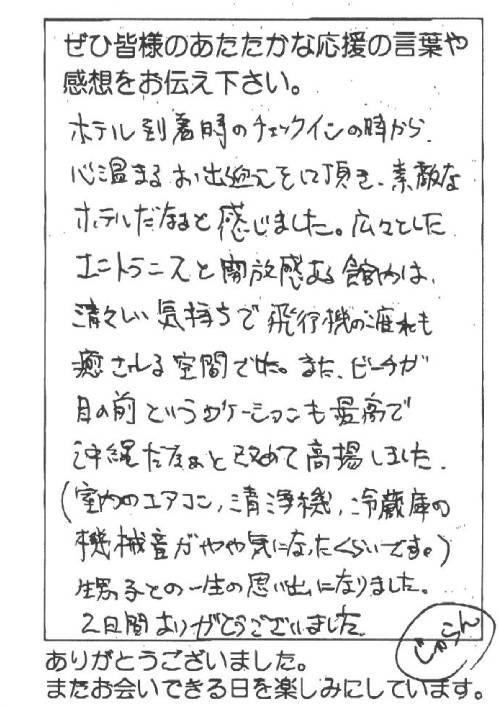 ぜひ皆様のあたたかな応援の言葉や
感想をお伝え下さい。
ホテル到着時のチェックインの時から、
心温まるお出迎えをして頂き、素敵な
ホテルだなぁと感じました。広々とした
エントランスと開放感ある館内は、
清々しい気持ちで飛行機の疲れも
癒される空間でした。また、ビーチが
目の前というロケーションも最高で
沖縄だなぁと改めて高揚しました。
(室内のエアコン、清浄機、冷蔵庫の
機械音がやや気になったくらいです。)
男子との一生の思い出になりました。
2日間ありがとうございました。
じゃらん
ありがとうございました。
またお会いできる日を楽しみにしています。